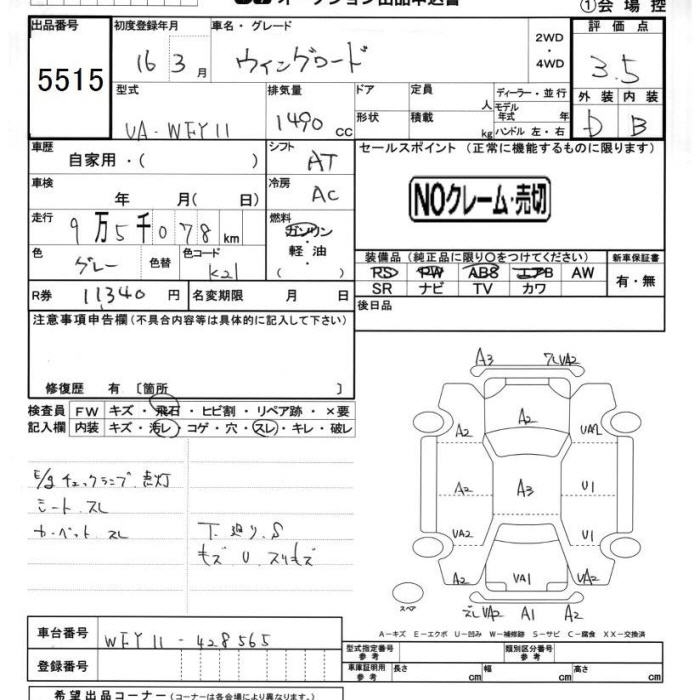 オークション出品申込書
①会場控
出品番号
5515
初度登録年月
16 3月
車名・グレード
ウィングロード
2WD
・
4WD
評価点
3.5
外装 内装
D B
型式
UA-WFY11
排気量
1490 CC
ドア
定員
人
ディーラー・並行
モデル年式 年
形状
積載
kg
ハンドル 左・右
車歴
自家用・( )
シフト
AT
車検
年 月( 日)
冷房
AC
走行
9万5千078km
燃料
ガソリン
・
軽油
( )
色
グレー
色替
色コード
K21
R券
11340円
名変期限 月 日
セールスポイント (正常に機能するものに限ります)
NOクレーム・売切
装備品(純正品に限り○をつけてください)
PS PW ABS エアB AW
SR ナビ TV カワ
新車保証書
有・無
後日品
注意事項申告欄(不具合内容等は具体的に記入して下さい)
修復歴 有 〔箇所 〕
検査員記入欄
FW キズ・飛石・ヒビ割・リペア跡・×要
内装 キズ・汚レ・コゲ・穴・スレ・キレ・破レ
E/gチェックランプ点灯
シート.スレ
カーペット スレ
下廻り.S
キズ U スリキズ
A3
A2
A2
A2
A3
U1
A2
U1
UA2
A2
UA1
UA2
UA2 A1 A2
スペア
A－キズ E－エクボ U－凹み W－補修跡 S－サビ C－腐食 XX－交換済
車台番号
WFY11-428565
登録番号
型式指定番号参考
類別区分番号参考
車庫証明用参考
長さ cm
幅 cm
高さ cm
希望出品コーナー(コーナーは各会場により異なります。)